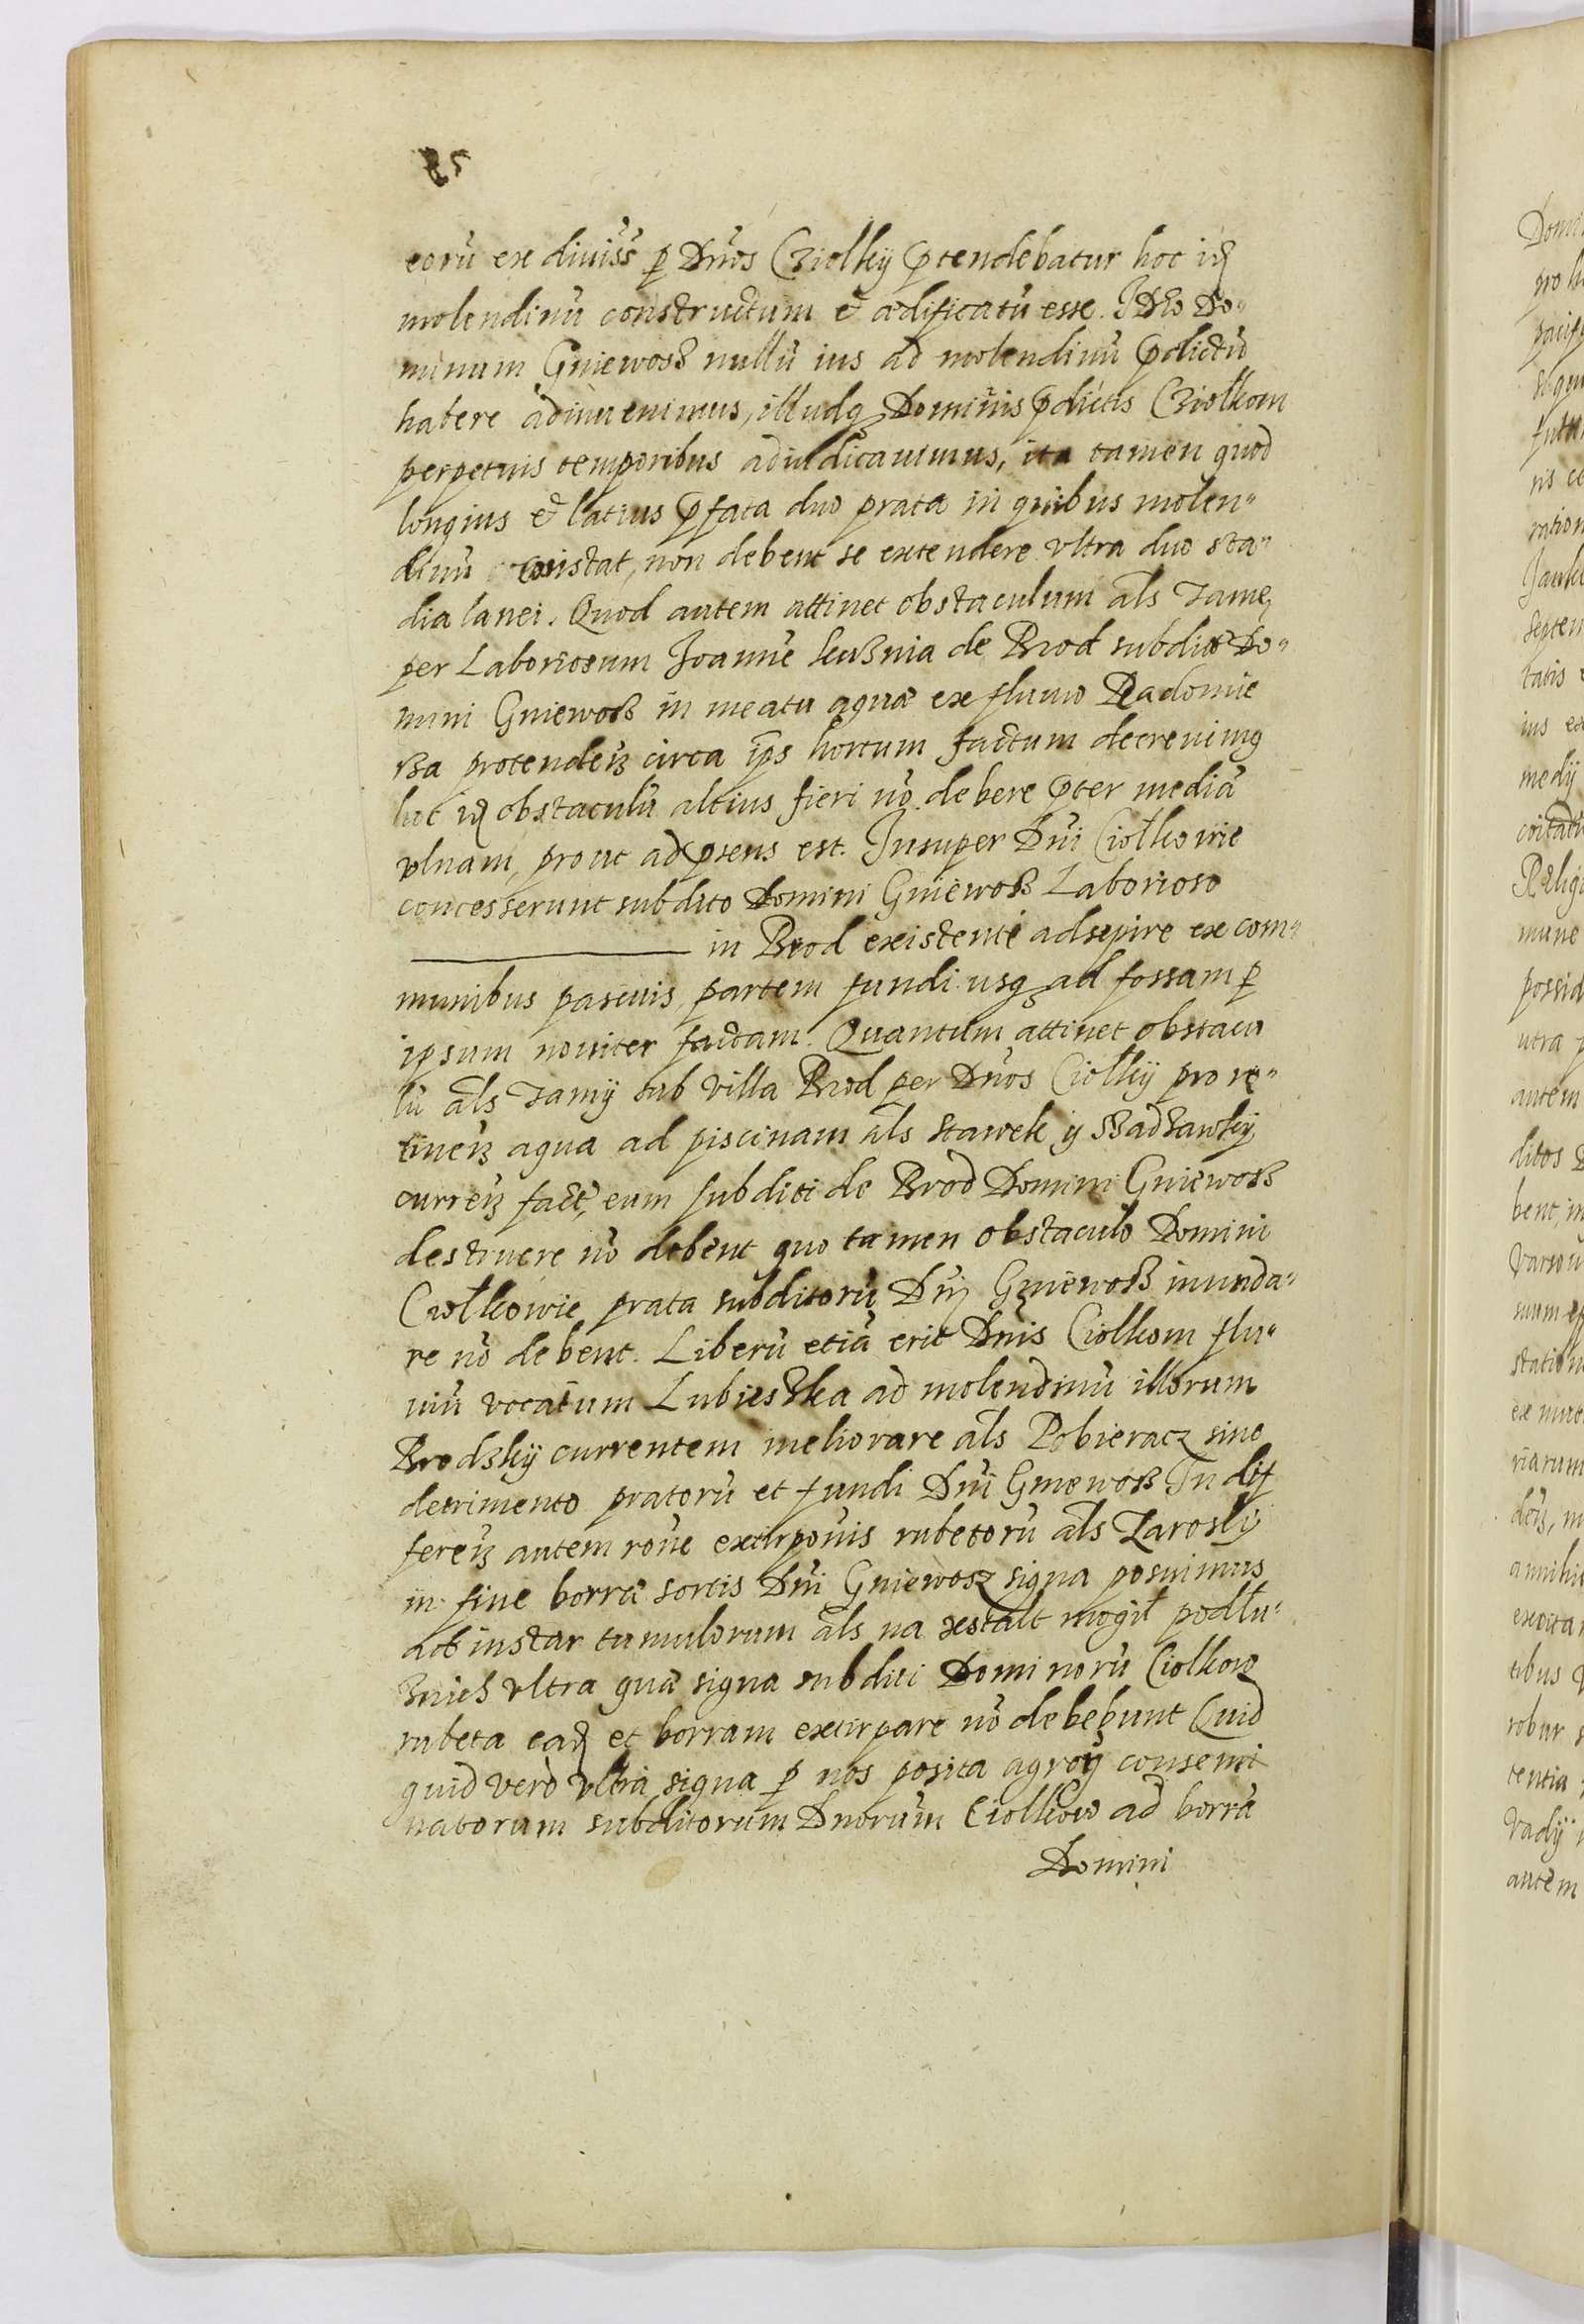 85
eorū ex diuiss̄ ꝑ Dn̄os Cziolky p̄tendebatur hoc idē
molendinū constructum et ædificatū esse. Ideo Do„
minum Gniewosz nullū ius ad molendinū p̄dictū
habere adinuenimus, illudq̨ Dominis p̄dictis Cziolkom
perpetuis temporibus adiudicauimus, ita tamen quod
longius et latius p̄fata duo prata in quibus molen„
dinū constat, non debent se extendere vltra duo sta„
dia lanei. Quod autem attinet obstaculum al̄s tamę
per Laboriosum Joannē kuznia de Brod subditū Do„
mini Gniewosz in meatu aquæ ex fluuio Radomie
rza protendeñ circa ip̄s hortum factum decreuimq
hoc idē obstaculū altius fieri nō debere p̄ter mediā
vlnam, prout ad p̄sens est. Insuper Dn̄i Ciołkowie
concesserunt subdito Domini Gniewosz Laborioso
in Brod existenti adsepire ex com„
munibus pascuis partem fundi usq̨ ad fossam ꝑ
ipsum nouiter factam. Quantum attinet obstacu
lū al̄s tamÿ sub villa Brod per Dn̄os Ciołky pro re„
tineñ aqua ad piscinam al̄s stawek y Sadzawky
curreñ fact̄, eum subditi de Brod Domini Gniewosz
destruere nō debent quo tamen obstaculo Domini
Ciołkowie prata subditorū Dn̄i Gniewosz inunda„
re nō debent. Liberū etiā erit Dn̄is Ciołkom flu„
uiū vocatum Lubieszka ad molendinū illorum
Brodzky currentem meliorare al̄s Pobieracz sine
detrimento pratorū et fundi Dn̄i Gniewosz In dif
fereñ autem ron̄e extirpōnis rubetorū al̄s Zarosly
in fine borrā sortis Dn̄i Gniewosz signa posuimus
ad instar tumulorum al̄s na xstalt mogił podłu„
znich vltra quā signa subditi Dominorū Ciolkow
rubeta eadē et borram extirpare nō debebunt Quid
quid vero vltrā signa ꝑ nos posita agroȳ consemi
natorum subditorum Dnorum Ciolkow ad borrā
Domini